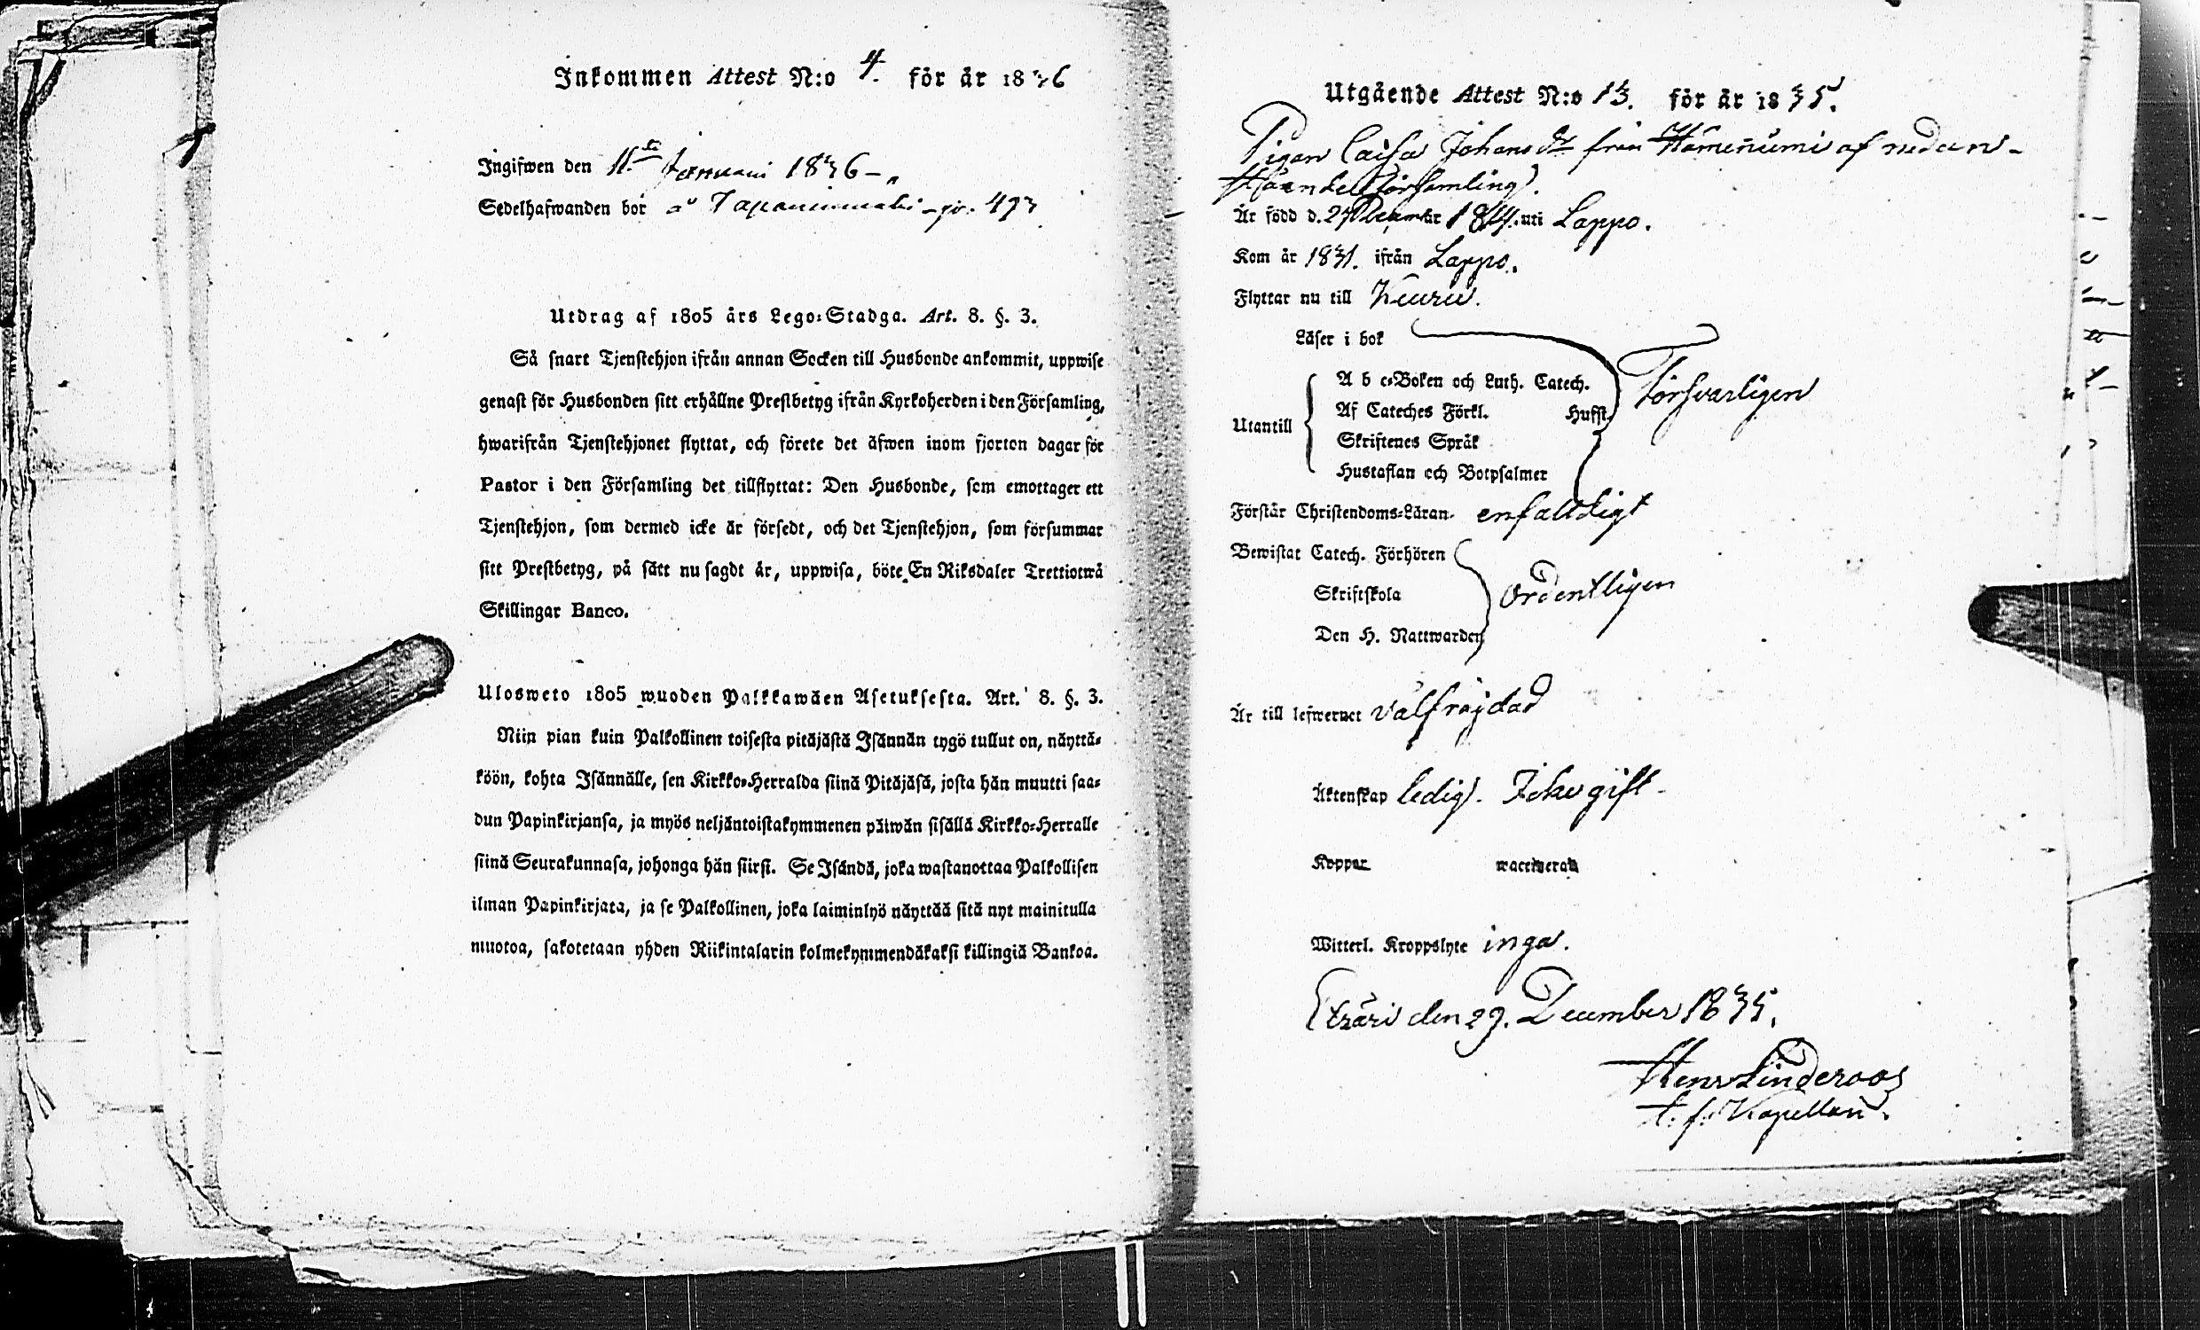 Inkommen Attest N:o 4. för år 1836
Ingifwen den 11.te Januari 1836
Sedelhafwanden bor å
Utdrag af 1805 års Lego-Stadga. Art. 8. §. 3.
Så snart Tjenstehjon ifrån annan Socken till Husbonde ankommit, uppwise
genast för Husbonden sitt erhållne Prestbetyg ifrån Kyrkoherden i den Församling,
hwarifrån Tjenstehjonet flyttat, och förete det äfwen inom fjorton dagar för
Pastor i den Församling det tillflyttat: Den Husbonde, som emottager ett
Tjenstehjon, som dermed icke är försedt, och det Tjenstehjon, som försummar
sitt Prestbetyg, på sätt nu sagdt är, uppwisa, böte En Riksdaler Trettiotwå
Skillingar Banco.
Ulosweto 1805 wuoden Palkkawäen Asetuksesta. Art. 8. §. 3.
Niin pian kuin Palkollinen toisesta pitäjästä Isännän tygö tullut on, näyttä-
köön, kohta Isännälle, sen Kirkko-Herralda siinä Pitäjäsä, josta hän muutti saa-
dun Papinkirjansa, ja myös neljäntoistakymmenen päiwän sisällä Kirkko-Herralle
siinä Seurakunnasa, johonga hän siirsi. Se Isändä, joka wastanottaa Palkollisen
ilman Papinkirjata, ja se Palkollinen, joka laiminlyö näyttää sitä nyt mainitulla
muotoa, sakotetaan yhden Riikintalarin kolmekymmendäkaksi killingiä Bankoa.
Utgående Attest N:o 13. för år 1835.
Pigan Caisa Johansdr från af nedan-
Församling.
Är född d. 27 December 1814. uti Lappo.
Kom år 1831. ifrån Lappo.
Flyttar nu till Keuru.
Läser i bok
A b c-Boken och Luth. Catech.
Af Cateches Förkl. Hufst.
Utantill
Skriftenes Språk
Hustaflan och Botpsalmer
Försvarligen
Förstår Christendoms-Läran enfaldigt
Bewistat Catech. Förhören
Skriftskola
Den H. Nattwarden
Ordentligen
Är till lefwernet välfräjdad
Äktenskap ledig. Icke gift
Koppor waccinerad
Witterl. Kroppslyte inga.
Etzäri den 29. December 1835.
Henr Linderoos
t. f. Kapellan.